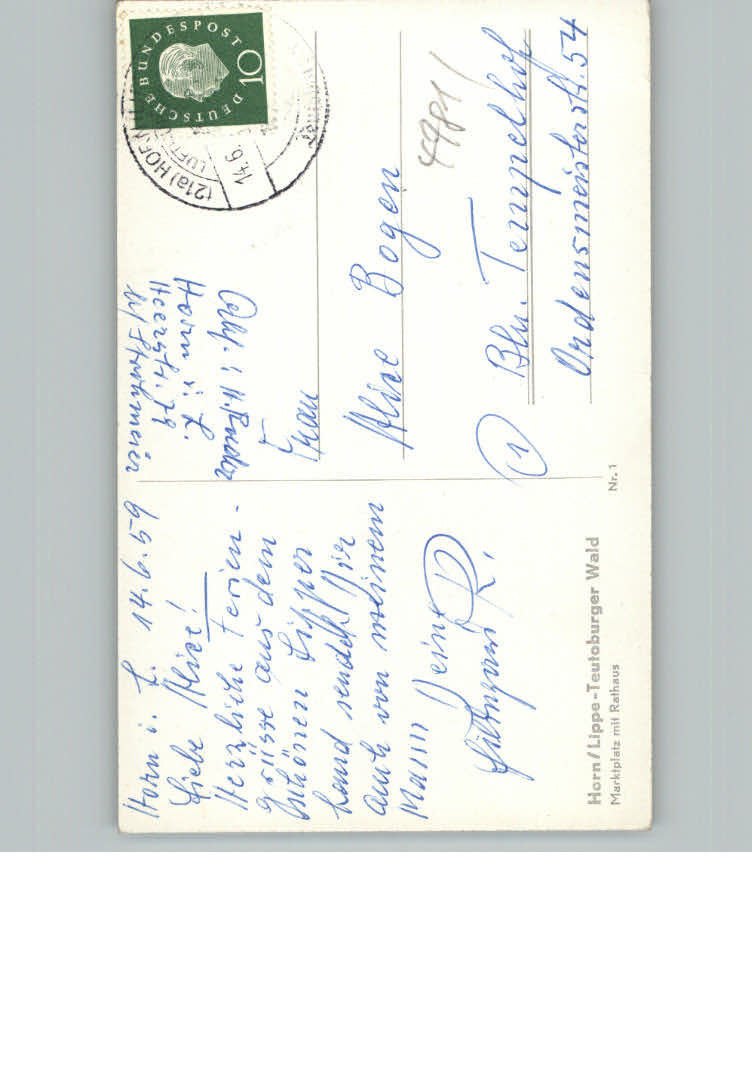 Horn i. L. 14.6.59
Liebe Alice!
Herzliche Ferien-
grüsse aus dem
schönen Lipper
Land sendet Dir
auch von meinem
Mann Deine
R.
Horn/Lippe-Teutoburger Wald
Marktplatz mit Rathaus
Nr. 1
DEUTSCHE BUNDESPOST
10
(21a) HORN
LUFTK
14.6.
Abs.:
Horn i. L.
Heerstr. 79
b/
4981/
Frau
Alice Bogen
(1) Bln. Tempelhof
Ordensmeisterstr. 54